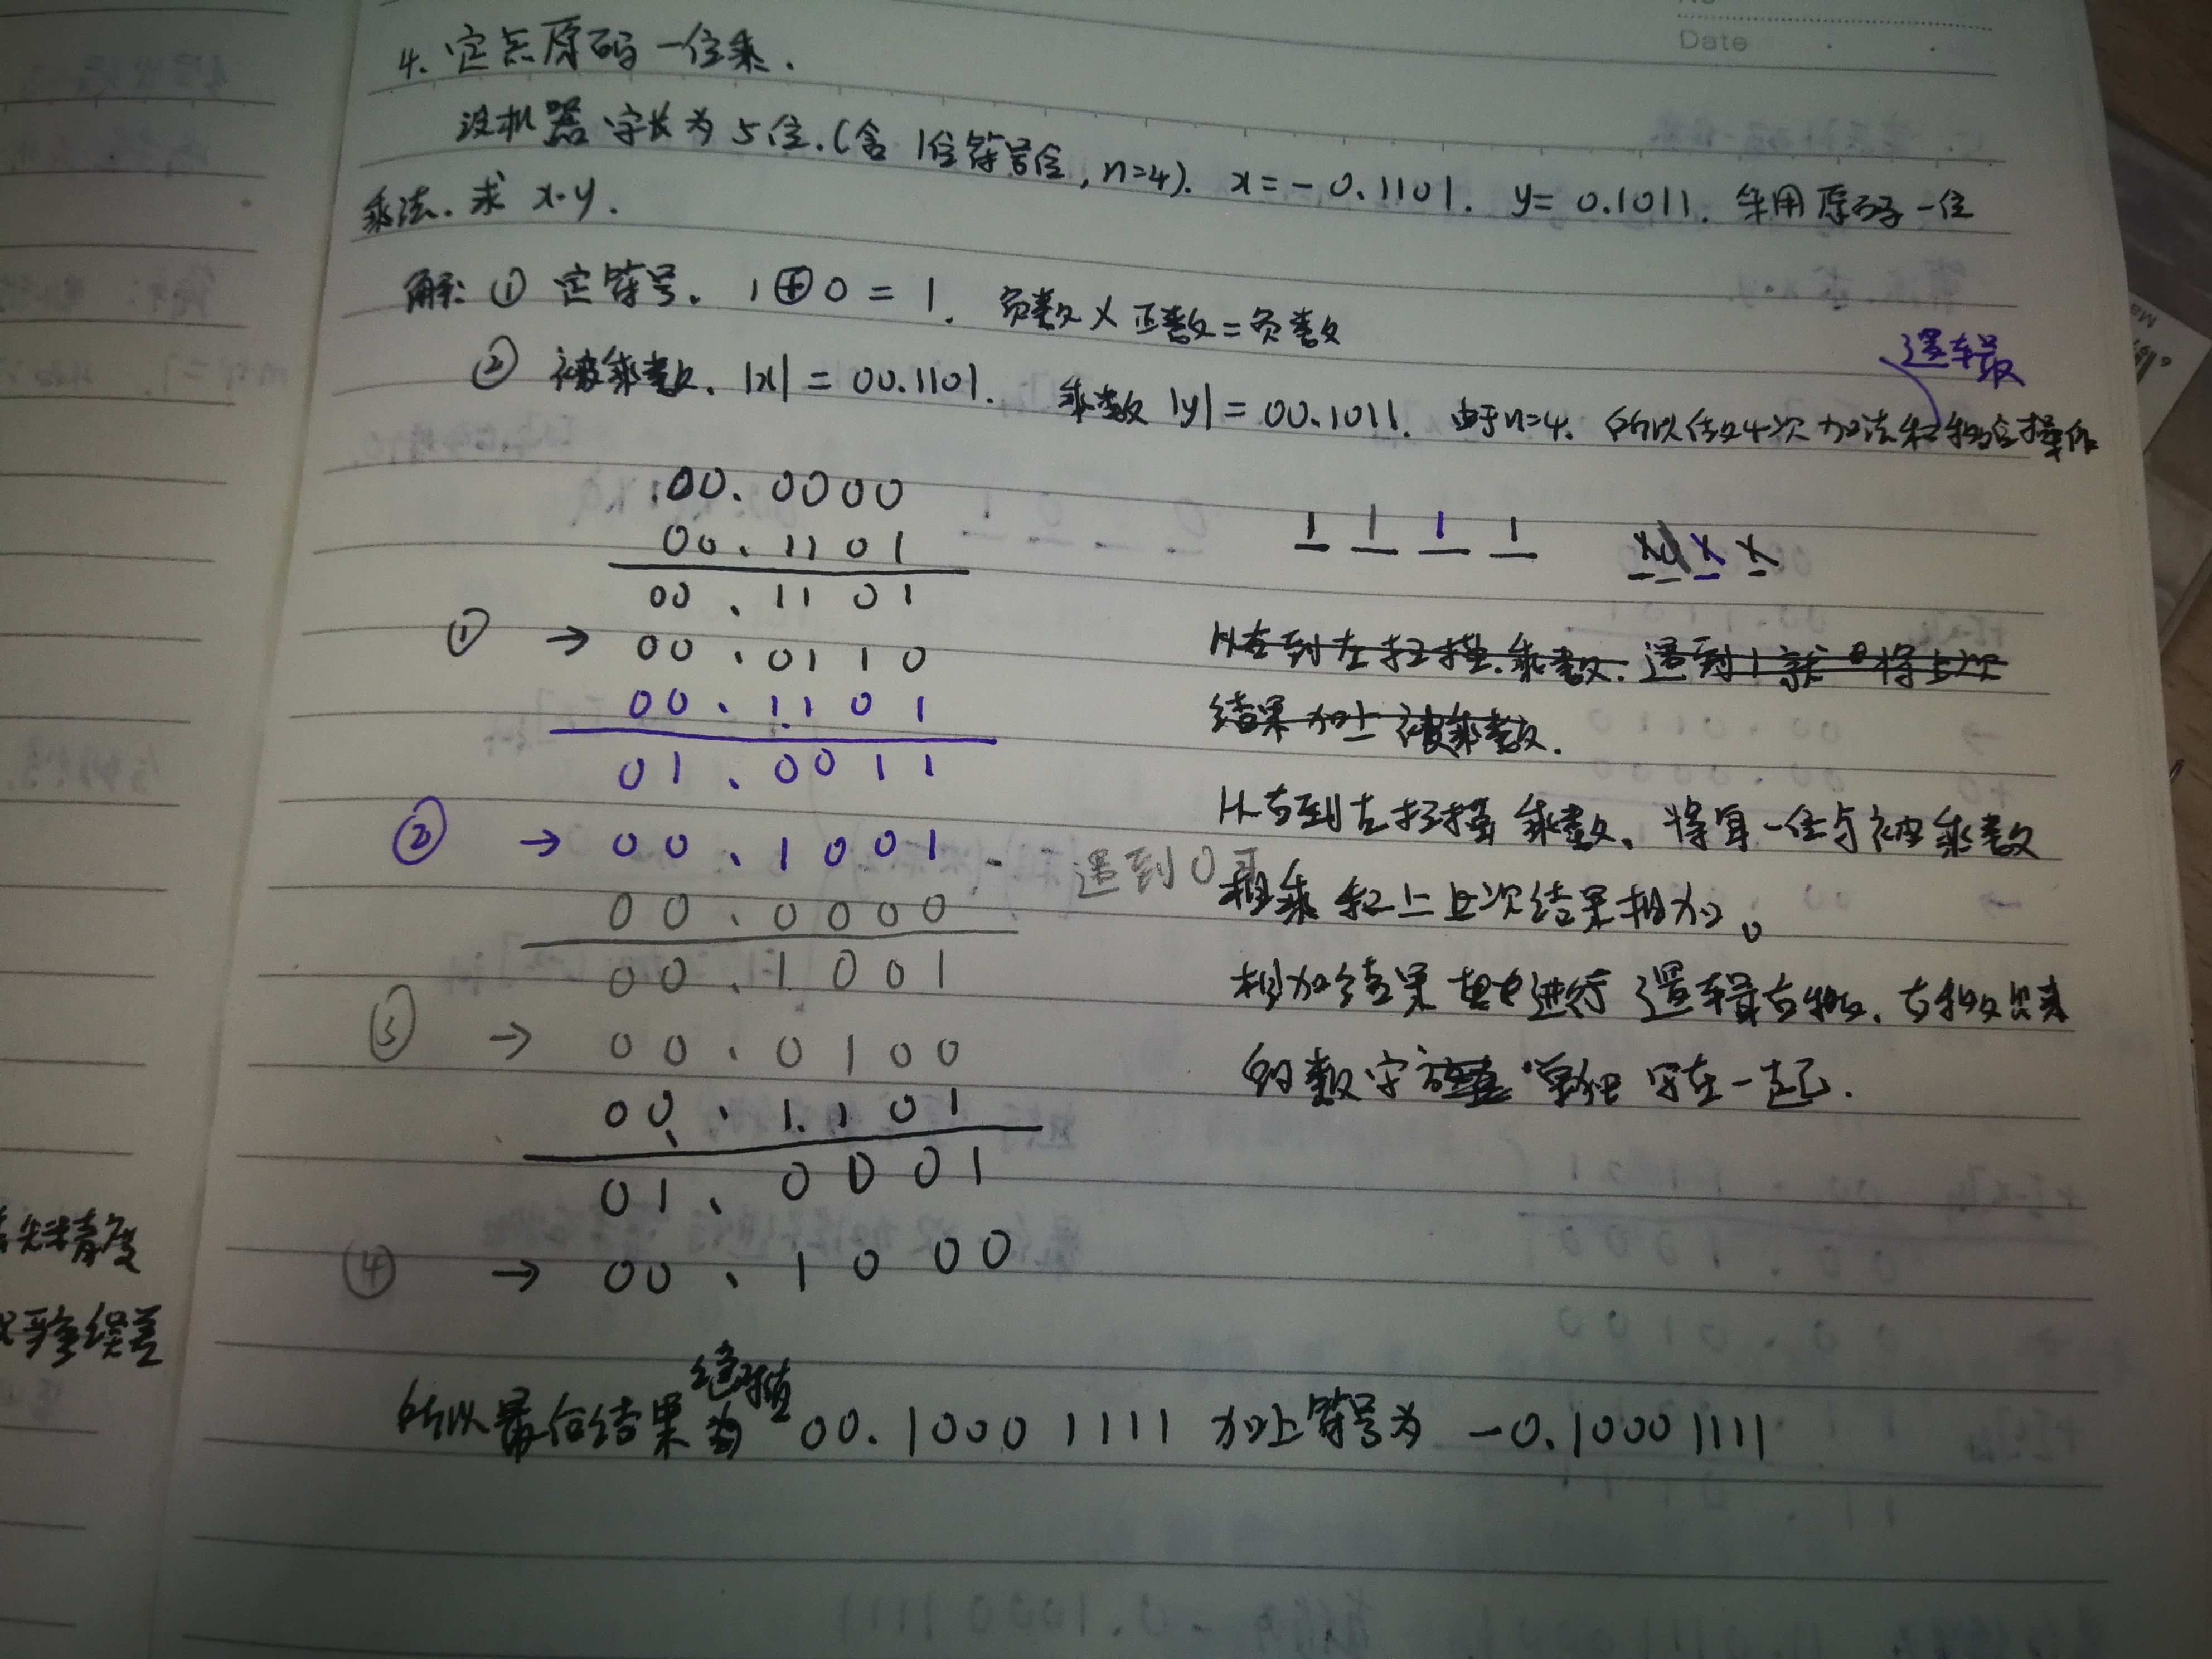 Date
4. 定点原码一位乘.
设机器字长为5位.(含1位符号位, n=4). x=-0.1101. y=0.1011. 采用原码一位
乘法. 求 x·y.
解: ① 定符号. 1⊕0=1. 负数×正数=负数
逻辑
② 被乘数. |x|=00.1101. 乘数 |y|=00.1011. 由于n=4. 所以作4次加法和移位操作
00.0000
00.1101
00.1101
① → 00.0110
00.1101
01.0011
② → 00.1001
遇到0
00.0000
00.1001
③ → 00.0100
00.1101
01.0001
④ → 00.1000
1 1 1 1
从右到左扫描.乘数.遇到1就将上次
结果加上被乘数.
从右到左扫描乘数、将每一位与被乘数
相乘和上上次结果相加。
相加结果进行逻辑右移.右移出来
的数字单独写在一起.
绝对值
所以最后结果为 00.10001111 加上符号为 -0.10001111
失精度
误差